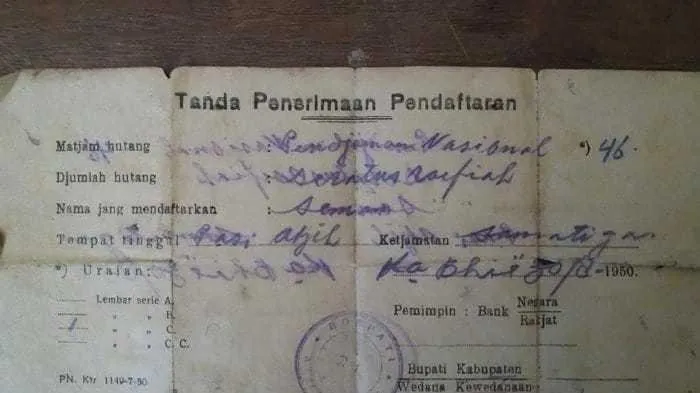 Tanda Penerimaan Pendaftaran
Matjam hutang : Pindjaman Nasional *) 46.
Djumlah hutang : Seratus roepiah
Nama jang mendaftarkan : Seman
Tempat tinggal Pasi Ketjamatan : Samatiga
*) Uraian: 1950.
Lembar serie A.
" " B.
1 " " C.
" " C.C.
Pemimpin : Bank Negara
Rakjat
BUPATI
Bupati Kabupaten
Wedana Kewedanaan:
PN. Ktr 1149-7-50